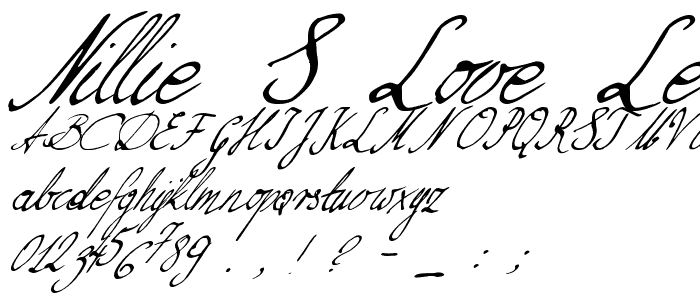 Nillie S Love Le
ABCDEFGHIJKLMNOPQRSTUV
abcdefghijklmnopqrstuvwxyz
0123456789 . , ! ? - _ : ;